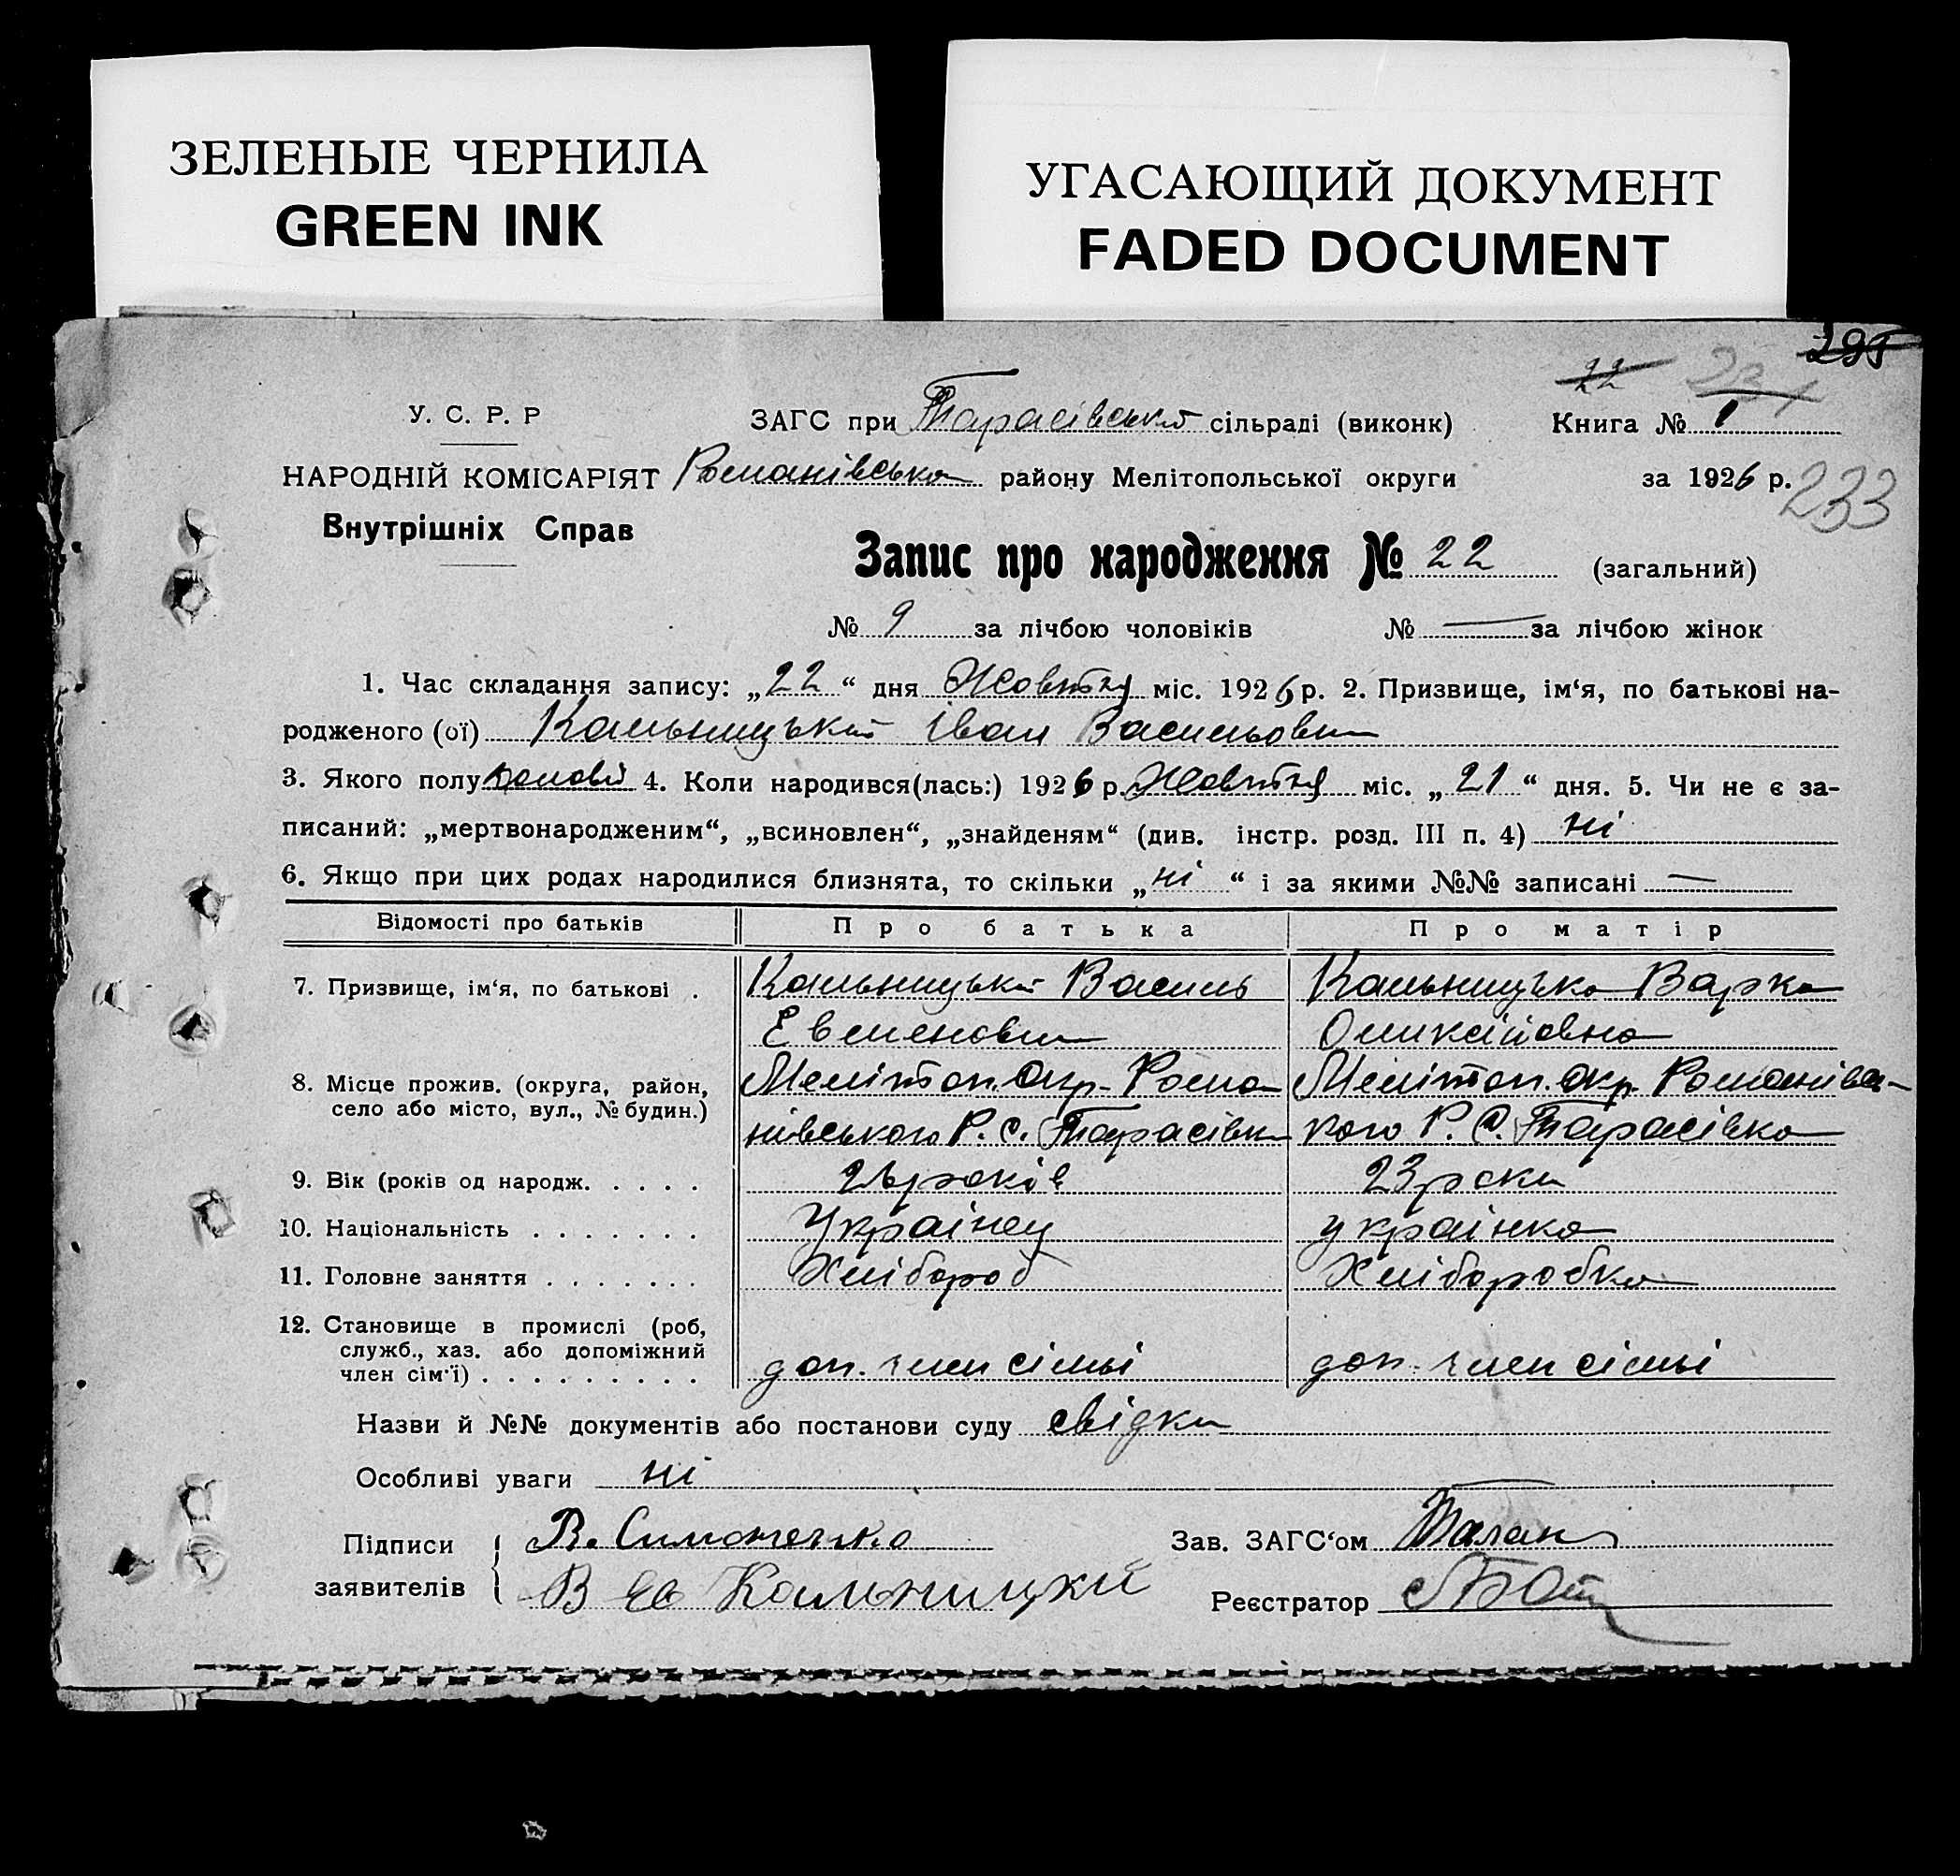 ЗЕЛЕНЫЕ ЧЕРНИЛА
GREEN INK
УГАСАЮЩИЙ ДОКУМЕНТ
FADED DOCUMENT
295
22 231
У. С. Р. Р ЗАГС при Тарасівській сільраді (виконк) Книга № 1
НАРОДНІЙ КОМІСАРІЯТ Романівська району Мелітопольської округи за 1926 р.
233
Внутрішніх Справ
Запис про народження № 22 (загальний)
№ 9 за лічбою чоловіків № — за лічбою жінок
1. Час складання запису: „22“ дня Жовтня міс. 1926 р. 2. Призвище, ім‘я, по батькові на-
родженого (ої) Кальницький Іван Васильович
3. Якого полу 4. Коли народився(лась:) 1926 р. Жовтня міс. „21“ дня. 5. Чи не є за-
писаний: „мертвонародженим“, „всиновлен“, „знайденям“ (див. інстр. розд. III п. 4) ні
6. Якщо при цих родах народилися близнята, то скільки „ні“ і за якими №№ записані —
Відомості про батьків Про батька Про матір
7. Призвище, ім‘я, по батькові . Кальницький Василь Кальницька Варка
Евменович Оликсіївна
8. Місце прожив. (округа, район, Мелітоп. Окр. Рома- Мелітоп. окр. Романівсь-
село або місто, вул., № будин.) нівського Р. с. Тарасівка кого Р. С. Тарасівка
9. Вік (років од народж. . . . . 26 років 23 роки
10. Національність . . . . . . . Українец українка
11. Головне заняття . . . . . . . Хлібороб Хліборобка
12. Становище в промислі (роб,
служб., хаз. або допоміжний
член сім‘ї) . . . . . . . . . доп. член сімьі доп. член сімьі
Назви й №№ документів або постанови суду свідки
Особливі уваги ні
Підписи В. Симоненко Зав. ЗАГС‘ом Талан
заявителів В Ев Кальницкий Реєстратор